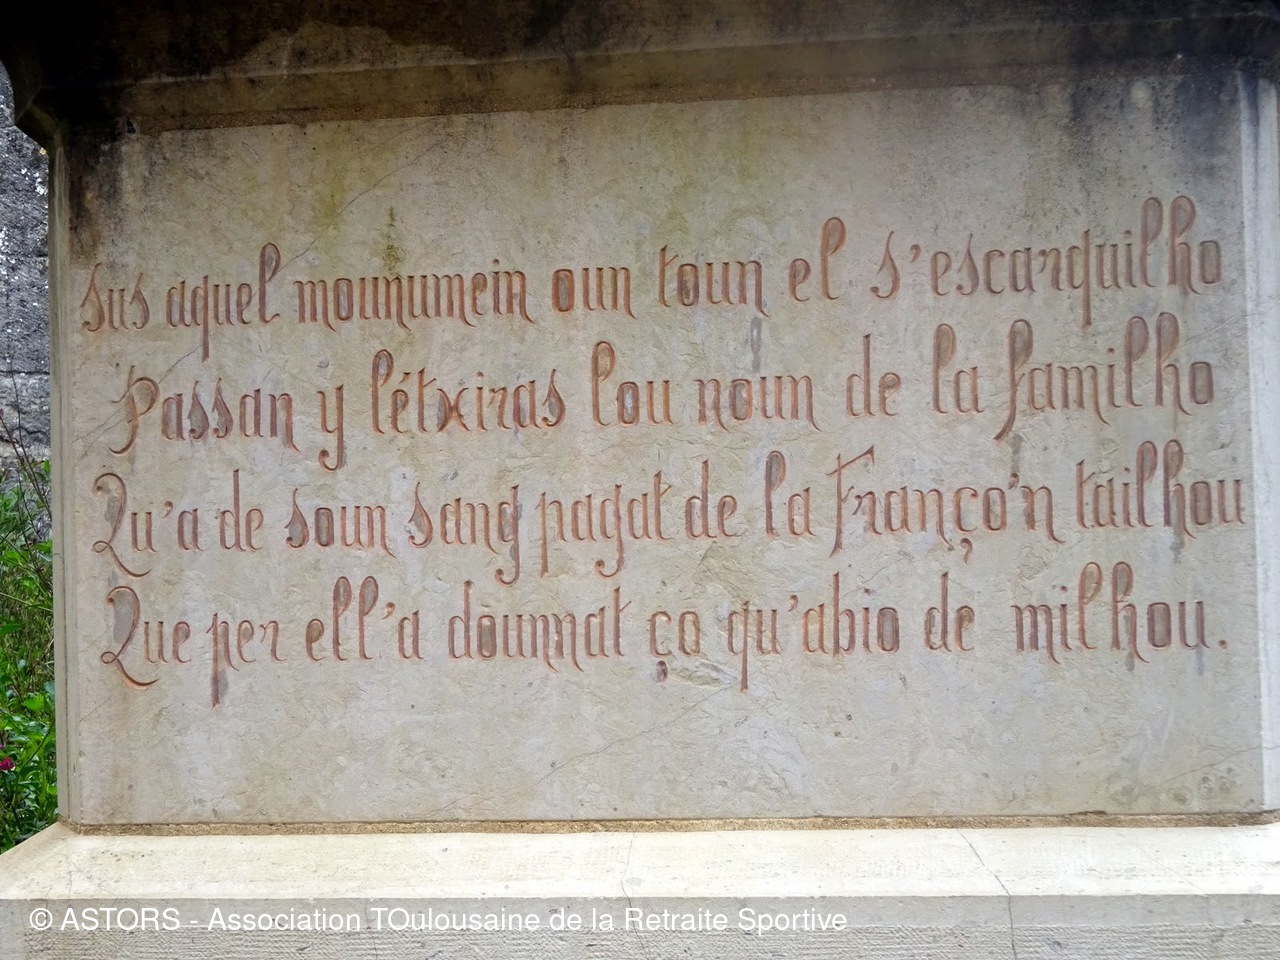 sus aquel mounumein oun toun el s'escarquilho
Passan y létxiras lou noun de la familho
Qu'a de soun sang pagat de la Franço'n tailhou
Que per ell'a dounnat ço qu'abio de milhou.
© ASTORS - Association TOulousaine de la Retraite Sportive